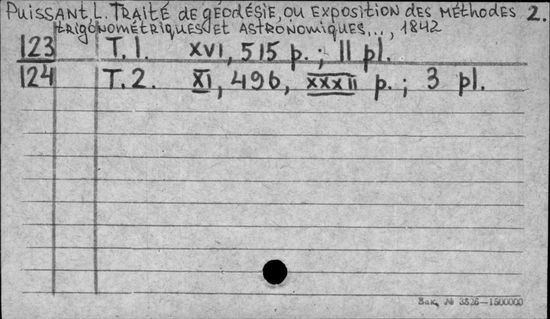 Puissant L. Traité de géodésie, ou exposition des méthodes 2.
trigonométriques et astronomiques..., 1842
123 T. 1. XVI, 515 p.; 11 pl.
124 T. 2. XI, 496, XXXII p.; 3 pl.
Зак. № 3526—1500000